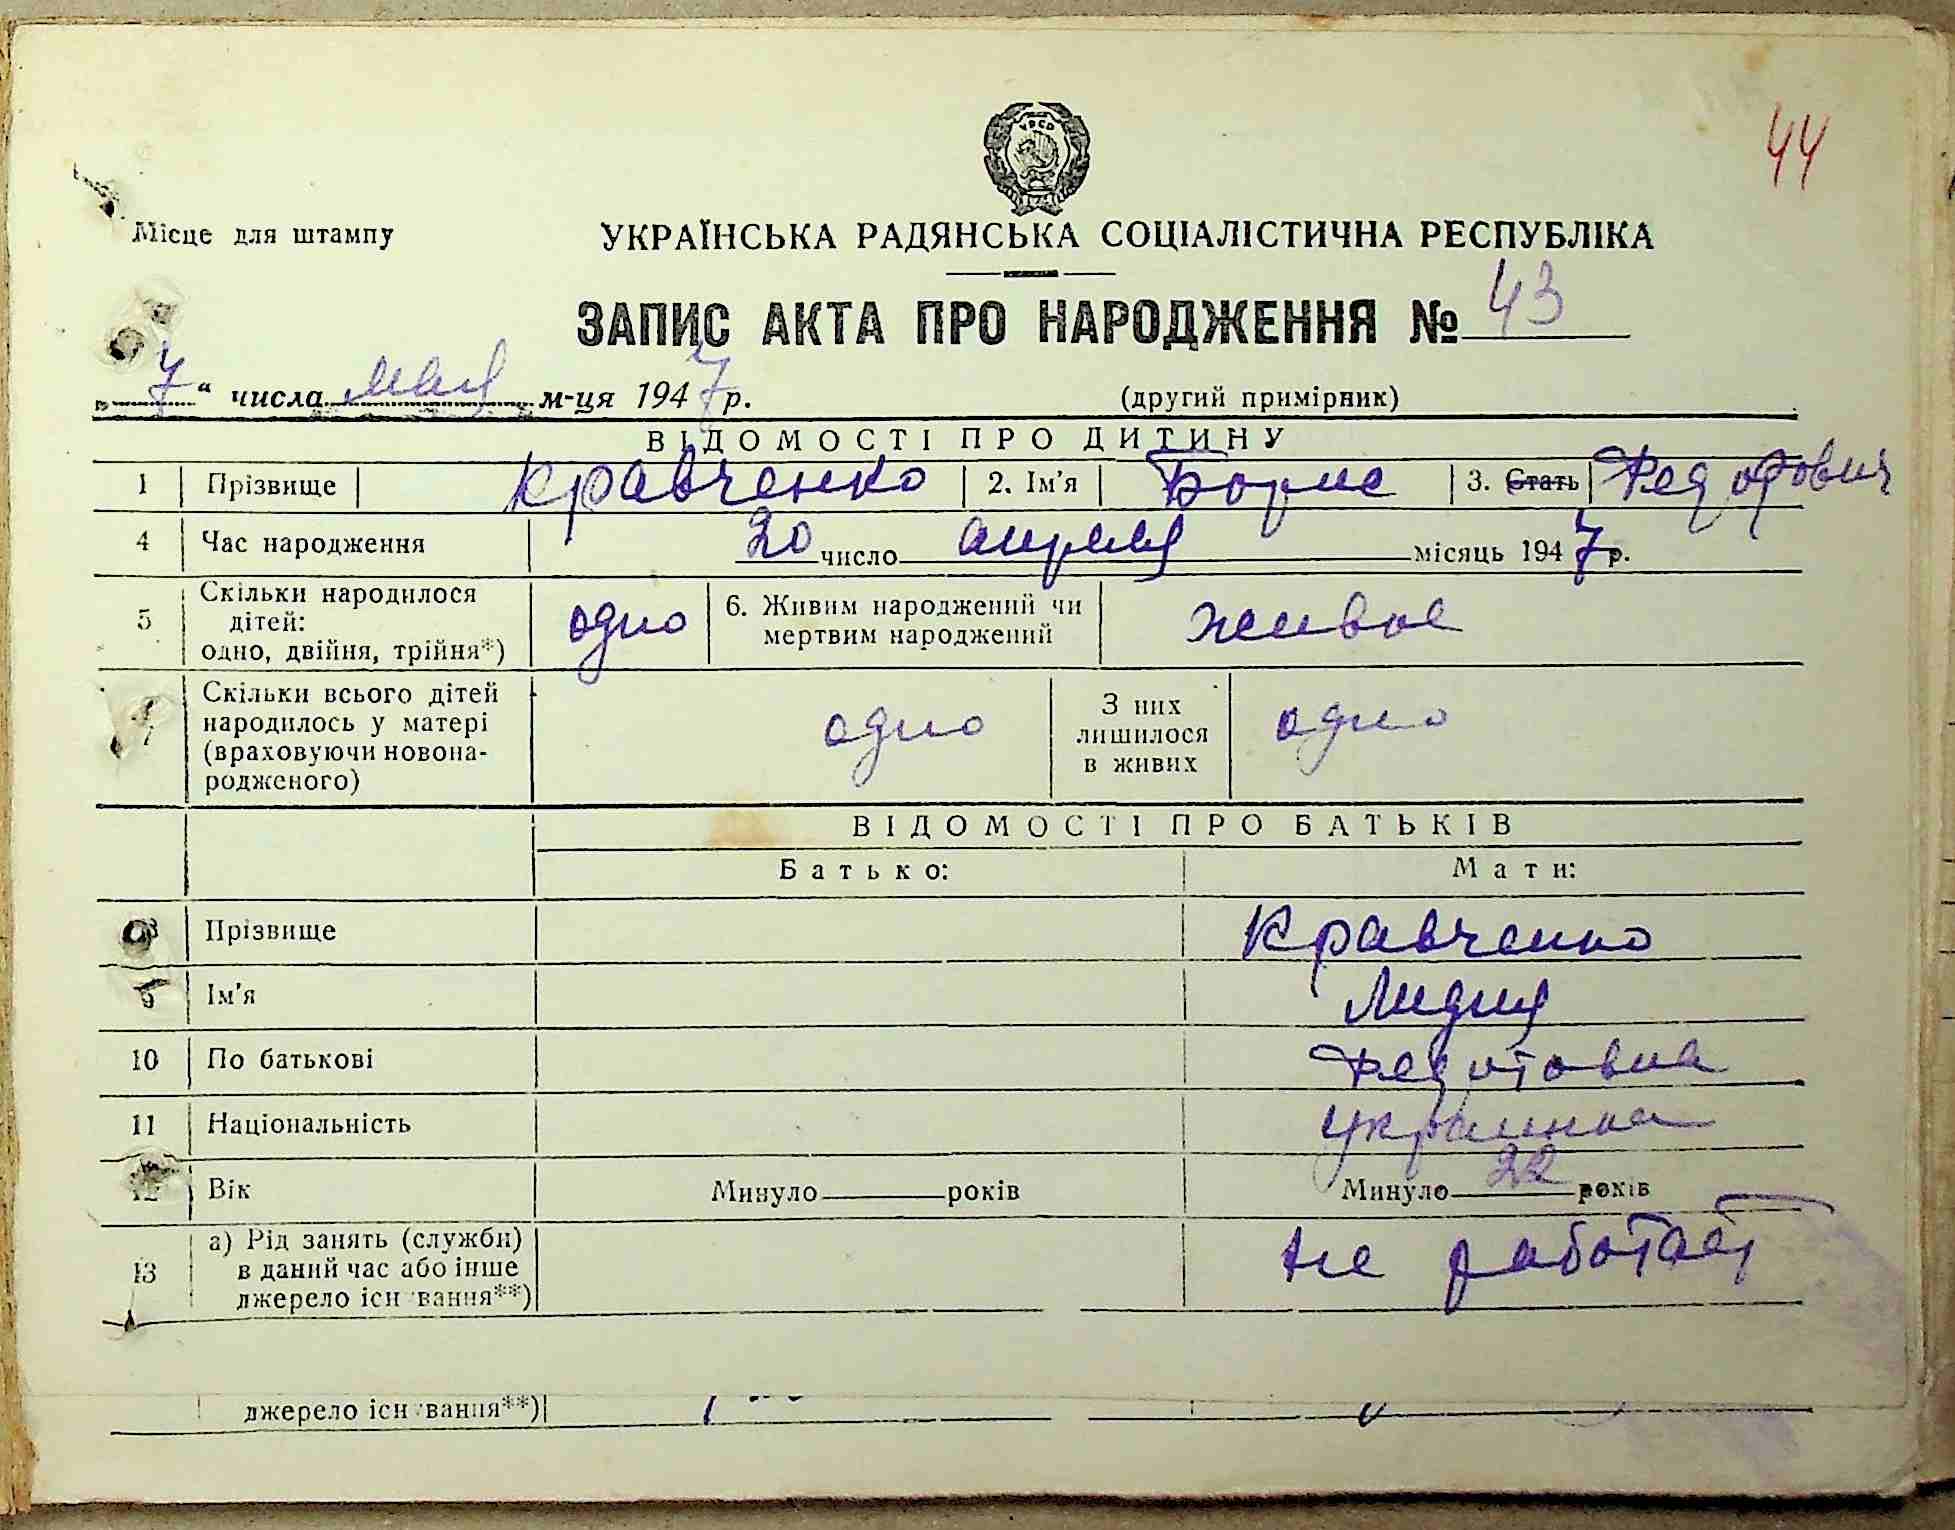 УРСР
44
Місце для штампу
УКРАЇНСЬКА РАДЯНСЬКА СОЦІАЛІСТИЧНА РЕСПУБЛІКА
ЗАПИС АКТА ПРО НАРОДЖЕННЯ № 43
7 " числа мая м-ця 1947 р. (другий примірник)
ВІДОМОСТІ ПРО ДИТИНУ
1 Прізвище Кравченко 2. Ім'я Борис 3. Стать Федотович
4 Час народження 20 число апреля місяць 1947 р.
5 Скільки народилося дітей: одно, двійня, трійня*) одно 6. Живим народжений чи мертвим народжений живое
7 Скільки всього дітей народилось у матері (враховуючи новонародженого) одно З них лишилося в живих одно
ВІДОМОСТІ ПРО БАТЬКІВ
Батько: Мати:
8 Прізвище Кравченко
9 Ім'я Лидия
10 По батькові Федотовна
11 Національність украинка
12 Вік Минуло років Минуло 22 років
13 а) Рід занять (служби) в даний час або інше джерело існування**) не работает
джерело існування**)